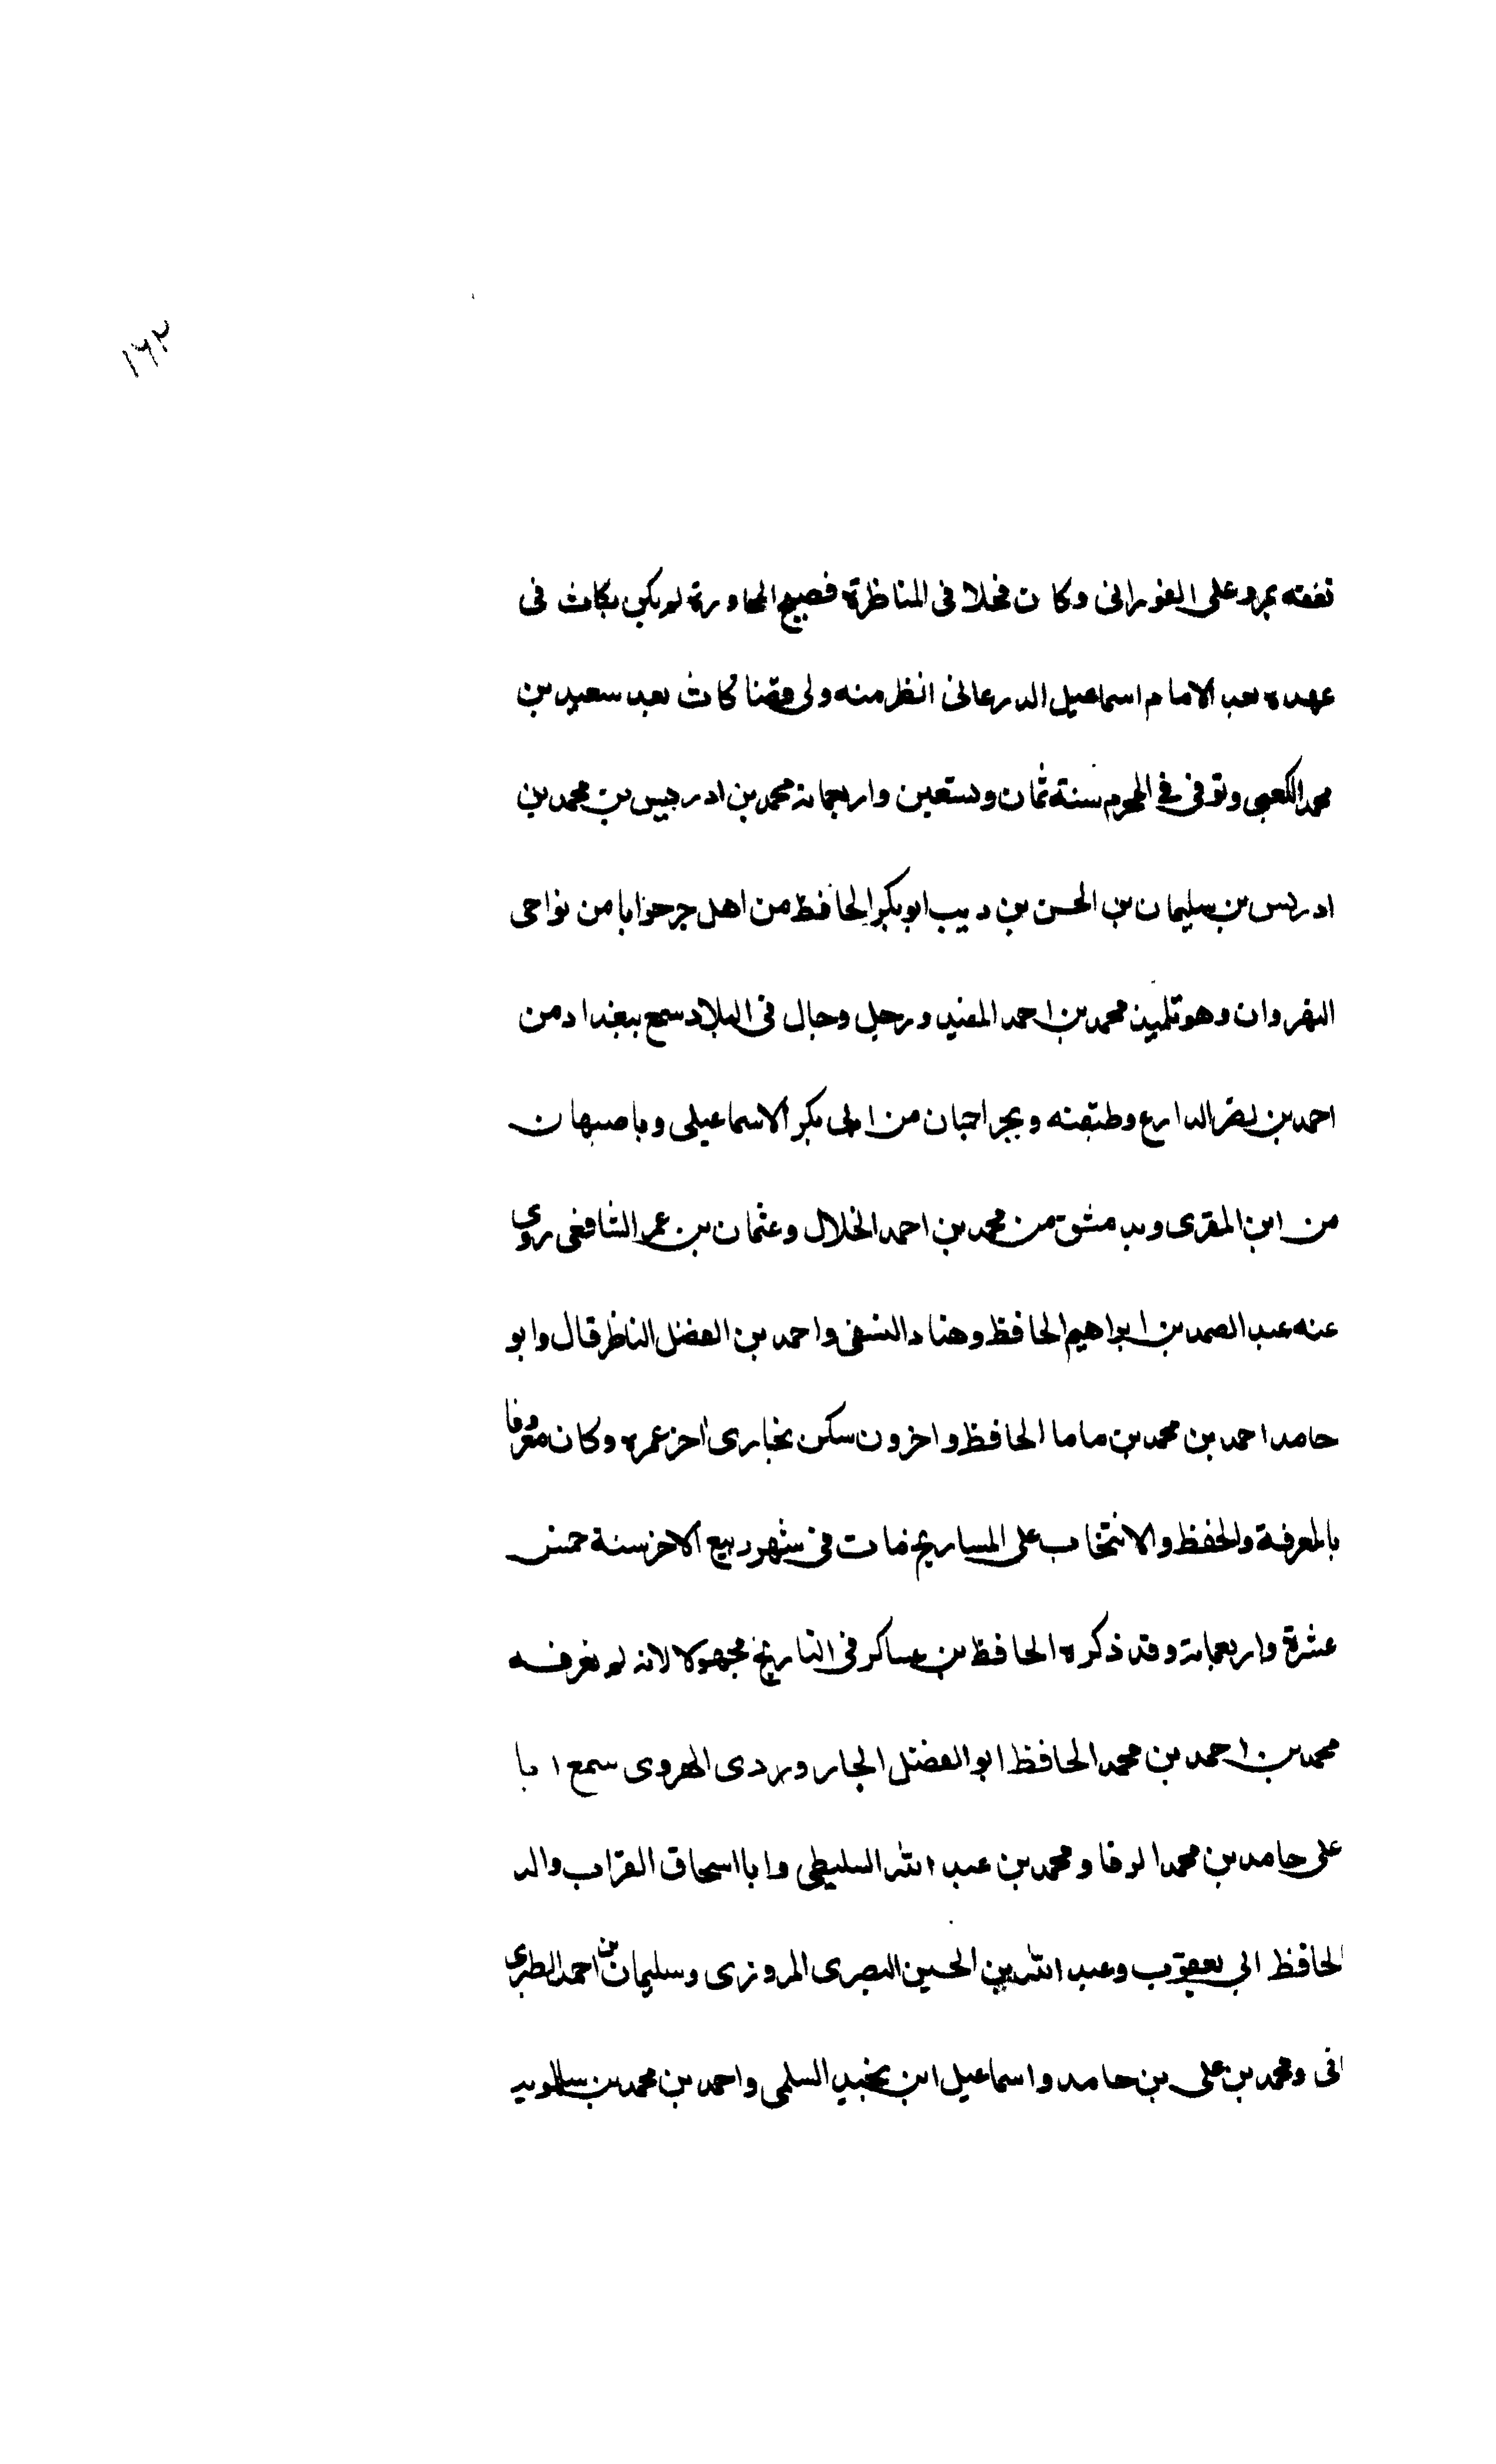 ١٦٢
تفقه بمرو على الفورانى وكان فحلا فى المناظرة فصيح المحاورة لم يكن بكاث فى
عهده بعد الامام اسماعيل الدرعانى انظر منه ولى قضا كاث بعد سعيد بن
محمد الكعبى وتوفى فى المحرم سنة ثمان وتسعين واربعمائة محمد بن ادريس بن محمد بن
ادريس بن سليمان بن الحسن بن ديب ابو بكر الحافظ من اهل جرجرايا من نواحى
النهروان وهو تلميذ محمد بن احمد المفيد ورحل وجال فى البلاد سمع ببغداد من
احمد بن نصر الدارع وطبقته وبجراجان من ابى بكر الاسماعيلى وباصبهان
من ابن المقرى وبدمشق من محمد بن احمد الخلال وعثمان بن عمر الشافعى روى
عنه عبد الصمد بن ابراهيم الحافظ وهناد النسفى واحمد بن الفضل الناظر قال وابو
حامد احمد بن محمد بن ماما الحافظ واخرون سكن بخارى اخر عمره وكان معروفا
بالمعرفة والحفظ والانتخاب على المساريخ مات فى شهر ربيع الاخر سنة خمس
عشرة واربعمائة وقد ذكره الحافظ بن عساكر فى التاريخ مجهولا لانه لم يعرفه
محمد بن احمد بن محمد الحافظ ابو الفضل الجارودى الهروى سمع ابا
على حامد بن محمد الرفا ومحمد بن عبد الله السليطى وابا اسحاق القراب والد
الحافظ ابى يعقوب وعبد الله بن الحسين البصرى المروزى وسليمان بن احمد الطبر
انى ومحمد بن على بن حامد واسماعيل ابن بخيد السلمى واحمد بن محمد بن